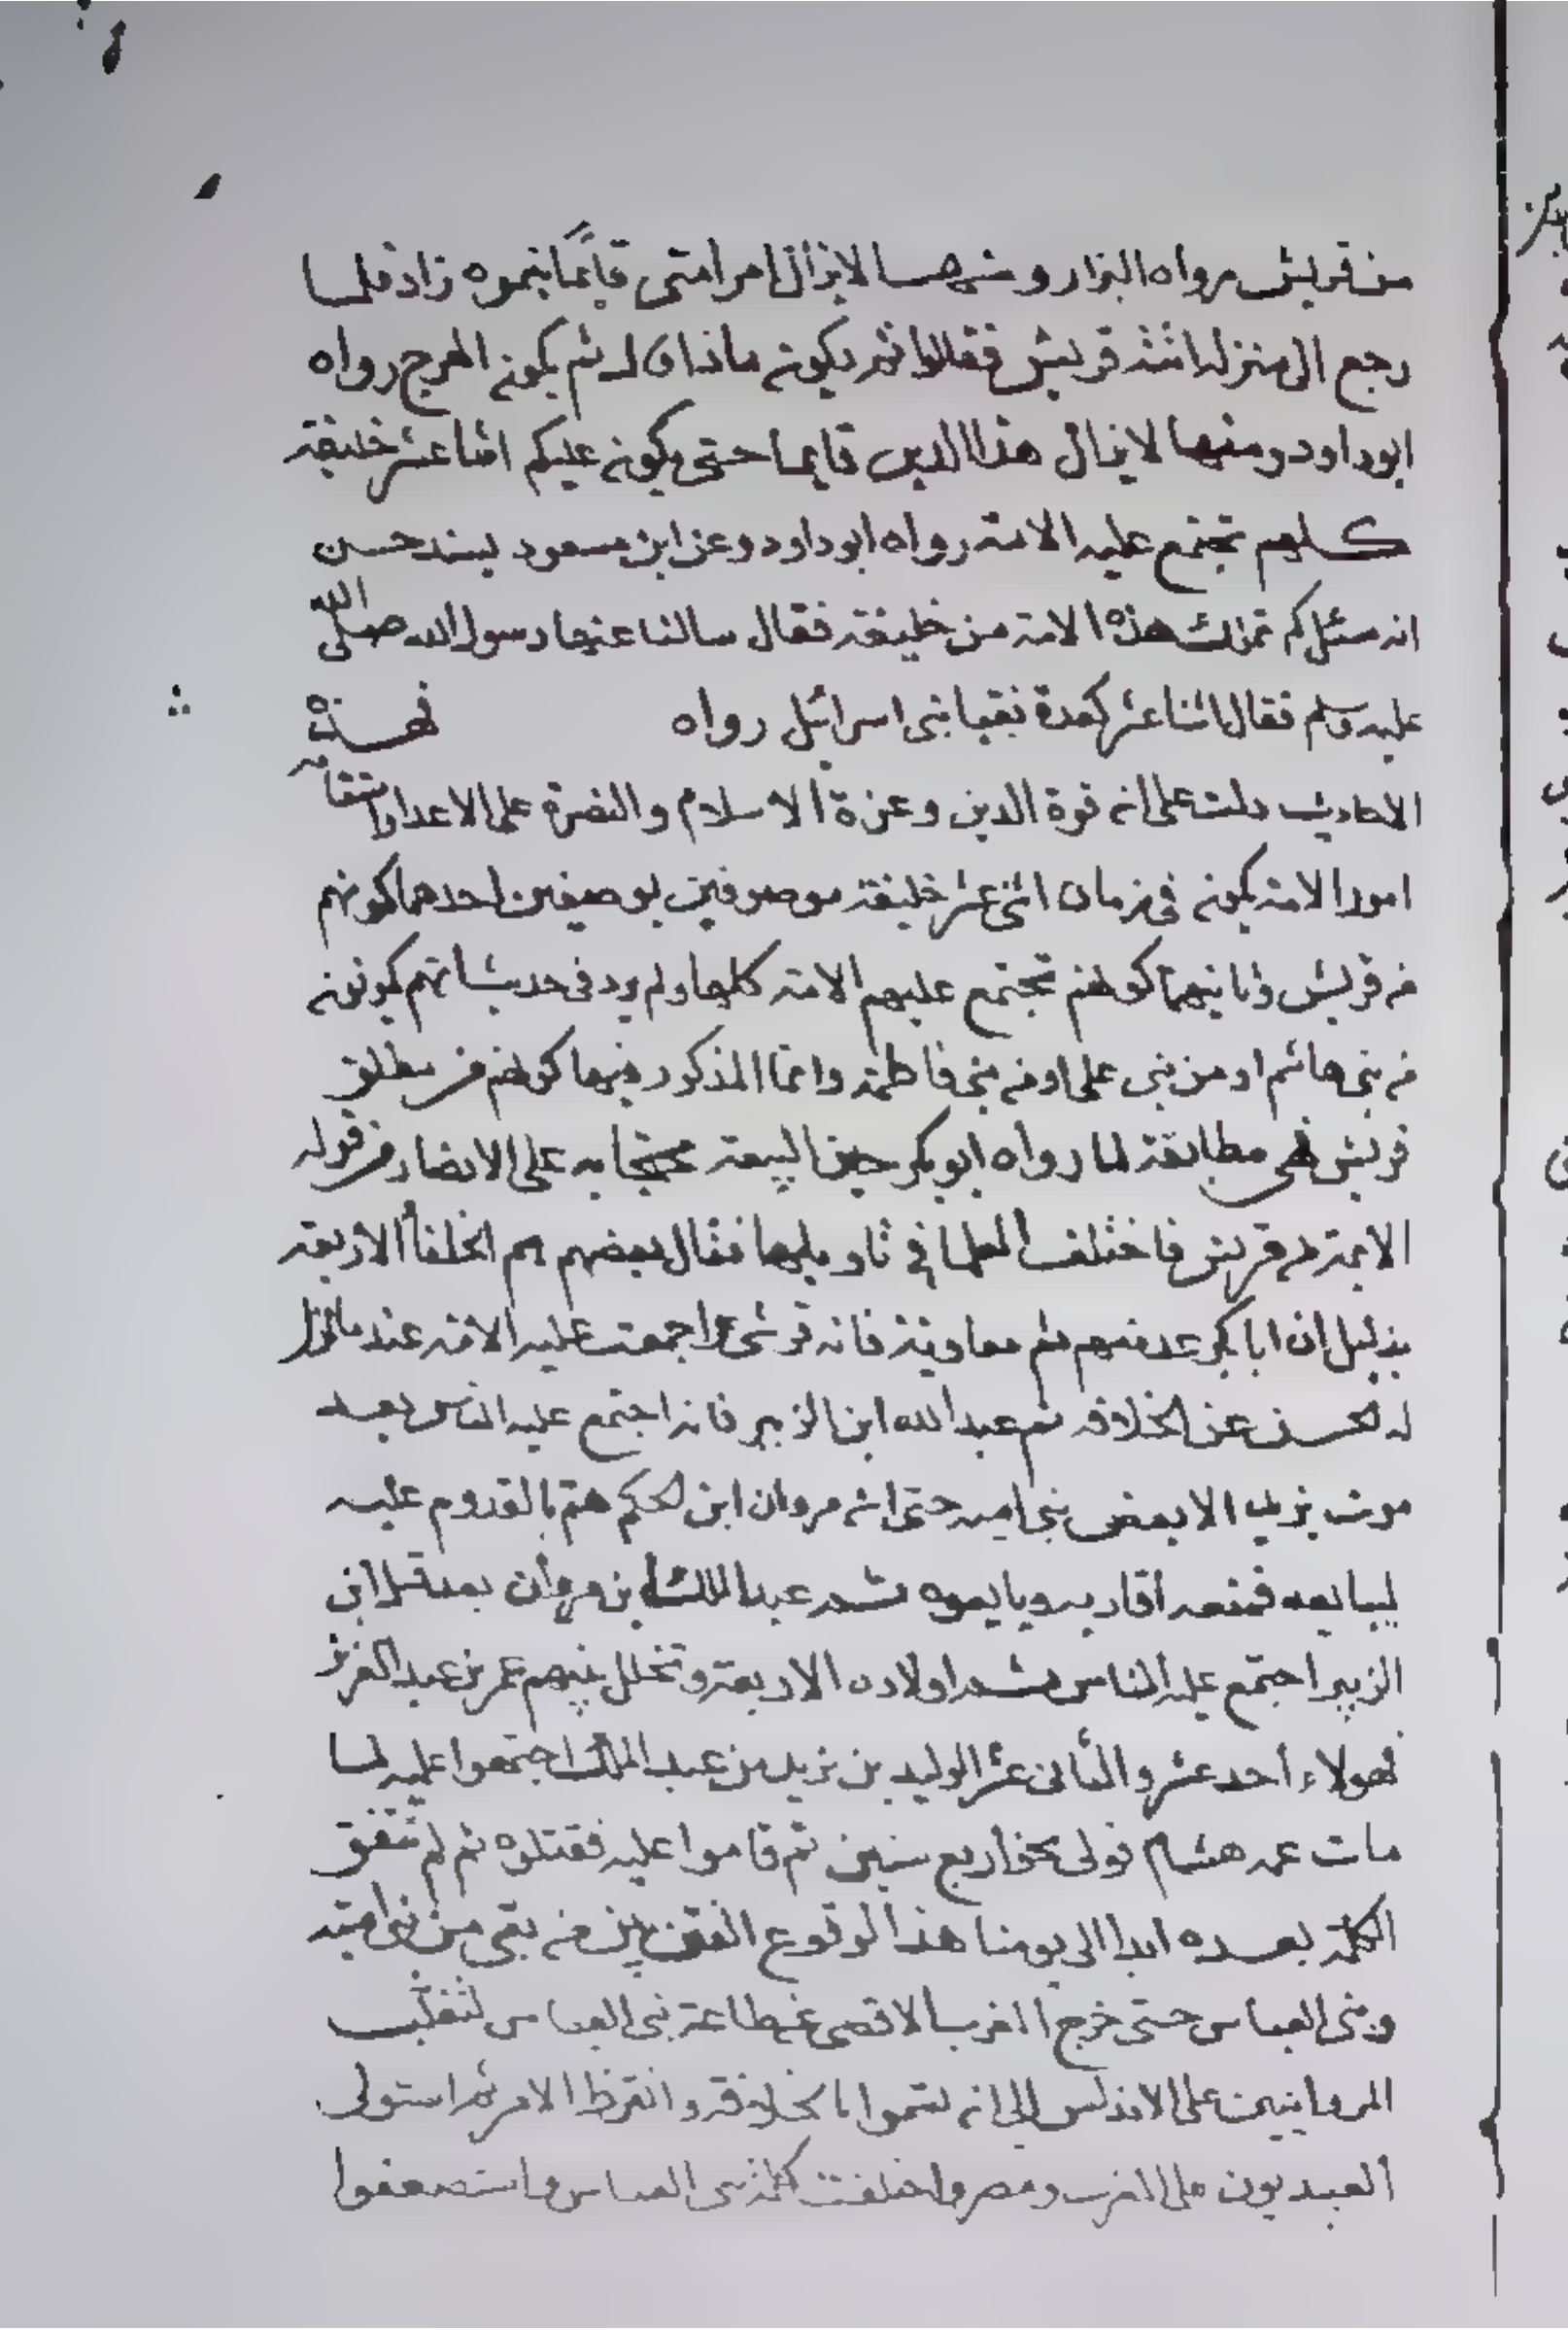 من قريش رواه البزار ومنهسا لا يزال امر امتى قائما بنحوه زاد فلما
رجع الى منزله اتته قريش فقالوا ثم يكون ماذا قال ثم يكون الهرج رواه
ابو داود ومنها لا يزال هذا الدين قايما حتى يكون عليكم اثنا عشر خليفة
كلهم تجتمع عليه الامة رواه ابو داود وعن ابن مسعود بسند حسن
انه سئل كم تملك هذه الامة من خليفة فقال سالنا عنها رسول الله صلى الله
عليه وسلم فقال اثنا عشر كعدة نقبا بنى اسرائيل رواه فهذه
الاحاديث دلت على ان قوة الدين وعزة الاسلام والنصرة على الاعدا واستقامة
امور الامة يكون في زمان اثنى عشر خليفة موصوفين بوصفين احدهما كونهم
من قريش وثانيهما كونهم تجتمع عليهم الامة كلها ولم يرد في حديث انهم يكونون
من بنى هاشم او من بنى على او من بنى فاطمة وانما المذكور فيها كونهم من مطلق
قريش فهى مطابقة لما رواه ابو بكر حين البيعة محتجا به على الانصار من قوله
الايمة من قريش فاختلف العلما في تاويلها فقال بعضهم هم الخلفا الاربعة
بدليل ان ابا بكر عد منهم ثم معاوية فانه قرشى واجمعت عليه الامة عند ما نزل
له الحسن عن الخلافة ثم عبد الله ابن الزبير فانه اجتمع عليه الناس بعد
موت يزيد الا بعض بنى امية حتى ان مروان ابن الحكم هم بالقدوم عليه
ليبايعه فمنعه أقاربه وبايعوه ثم عبد الملك بن مروان بعد قتل ابن
الزبير اجتمع عليه الناس ثم اولاده الاربعة وتخلل بينهم عمر بن عبد العزيز
فهولاء أحد عشر والثانى عشر الوليد بن يزيد بن عبد الملك اجتمعوا عليه لما
مات عمه هشام فولى نحو أربع سنين ثم قاموا عليه فقتلوه ثم لم تتفق
الكلمة بعده ابدا الى يومنا هذا لوقوع الفتن بين من بقى من بنى امية
وبنى العباس حتى خرج المغرب الاقصى عن طاعة بنى العباس لتغلب
المروانيين على الاندلس الى ان تسموا بالخلافة وانقرظ الامر ثم استولى
العبيديون على المغرب ومصر واختلفت كلمة بنى العباس واستضعفوا